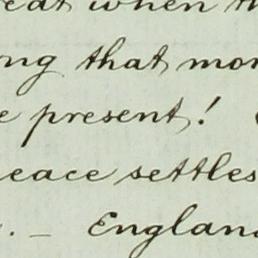 eat when th
ng that mor
e present!
eace settles
. — England